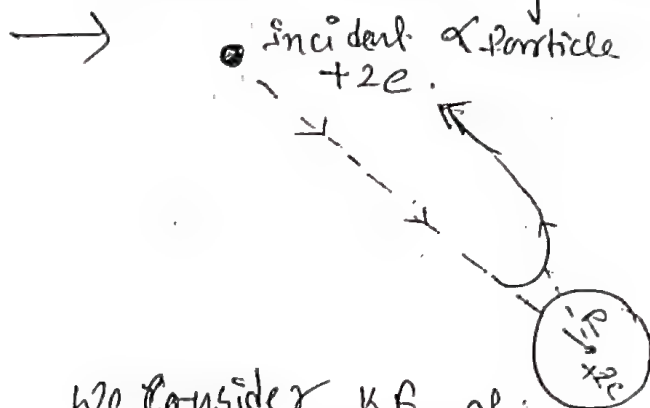 incident α Particle
+2e.
R
+2e
We Consider K.E. of